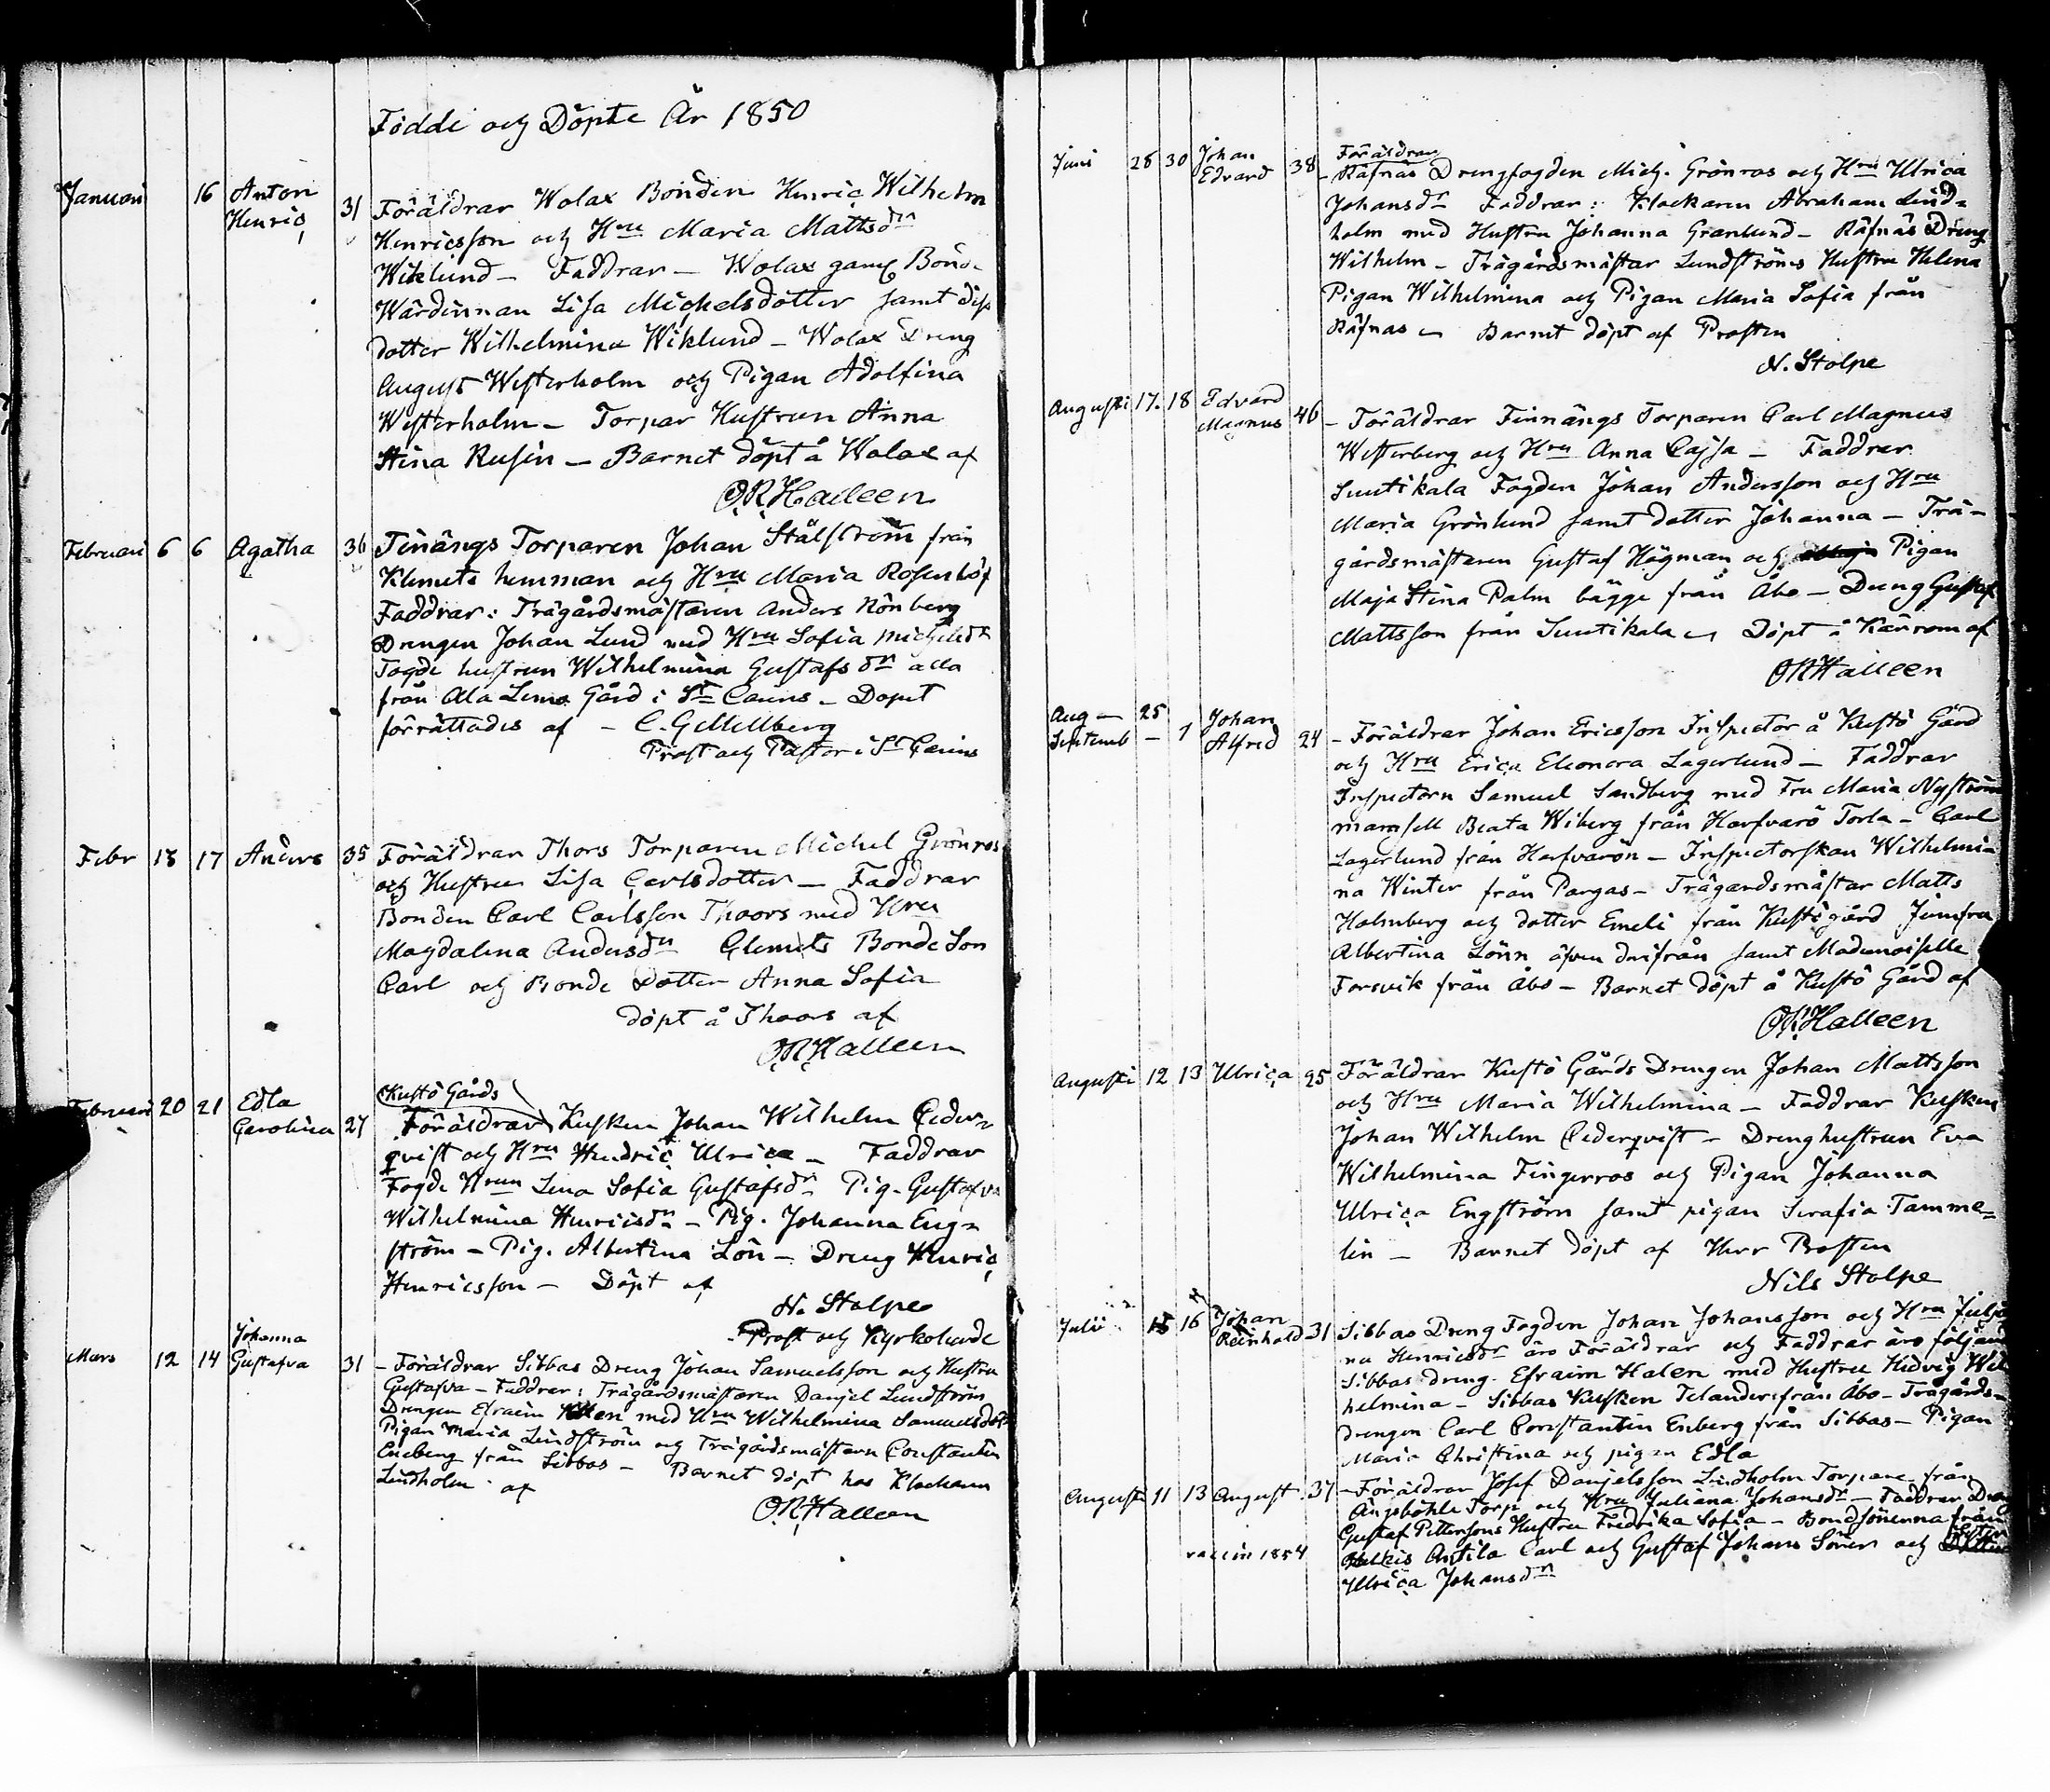 Födde och Döpte År 1850
Januari 16 Anton Henric 31 Föräldrar Wolax Bonden Henric Wilhelm
Henricsson och Hru Maria Mattsdr
Wiklund - Faddrar - Wolax gamb Bond-
Wärdinnan Lisa Michelsdotter samt dess
dotter Wilhelmina Wiklund - Wolax Dreng
August Westerholm och Pigan Adolfina
Westerholm - Torpar Hustrun Anna
Stina Rusin - Barnet döpt å Wolax af
O.R.Halleen
Februari 6 6 Agatha 36 Finängs Torparen Johan Stålström från
Klemets hemman och Hru Maria Rosenlöf
Faddrar: Trägårdsmästaren Anders Rönberg
Drengen Johan Lund med Hru Sofia Michelsdr
Fogde hustrun Wilhelmina Gustafsdr alla
från Ala Lemo Gård i St Carins - Dopet
förrättades af - C.G. Mellberg
Prost och Pastor i St Carins
Febr 15 17 Anders 35 Föräldrar Thors Torparen Michel Grönros
och Hustru Lisa Carlsdotter - Faddrar
Bonden Carl Carlsson Thoors med Hru
Magdalena Andersdr Clemets Bonde Son
Carl och Bonde Dotter Anna Sofia
döpt å Thoors af
O.R.Halleen
Kustö Gårds
Februari 20 21 Edla Carolina 27 Föräldrar Kusken Johan Wilhelm Ceder=
qvist och Hru Hendric Ulrica - Faddrar
Fogde Hrun Lena Sofia Gustafsdr Pig. Gustafva
Wilhelmina Henricsdr - Pig. Johanna Eng=
ström - Pig. Albertina Lön - Dreng Henric
Henricsson - Döpt af
N. Stolpe
Prost och Kyrkoherde
Mars 12 14 Johanna Gustafva 31 - Föräldrar Sibbas Dreng Johan Samuelsson och Hustru
Gustafva - Faddrar: Trägårdsmästaren Danjel Lundström
Drengen Efraim Halen med Hru Wilhelmina Samuelsdotr
Pigan Maria Lindström och Trägårdsmästarn Constantin
Eneberg från Sibbas - Barnet döpt hos Klockarn
Lindholm af
O.R.Halleen
Föräldrar
Juni 28 30 Johan Edvard 38 - Räfnäs Drengfogden Mich. Grönros och Hru Ulrica
Johansdr Faddrar: Klockaren Abraham Lind=
holm med Hustru Johanna Granlund - Räfnäs Dreng
Wilhelm - Trägårdsmästar Lundströms Hustru Helena
Pigan Wilhelmina och Pigan Maria Sofia från
Räfnäs - Barnet döpt af Prosten
N. Stolpe
Augusti 17. 18 Edvard Magnus 46 - Föräldrar Finnängs Torparen Carl Magnus
Westerberg och Hru Anna Cajsa - Faddrar
Suntikala Fogden Johan Andersson och Hru
Maria Grönlund samt dotter Johanna - Trä-
gårdsmästaren Gustaf Högman och Pigan
Maja Stina Palm bägge från Åbo - Dreng Gustaf
Mattsson från Suntikala - Döpt å Kärrom af
O.R.Halleen
Aug - 25
Septemb - 1 Johan Alfred 24 - Föräldrar Johan Ericsson Inspector å Kustö Gård
och Hru Erica Eleonora Lagerlund - Faddrar
Inspectorn Samuel Sandberg med Fru Maria Nyström
mamsell Beata Wiberg från Harfvarö Torla - Carl
Lagerlund från Harfvarön - Inspectorskan Wilhelmi-
na Winter från Pargas - Trägårdsmästar Matts
Holmberg och dotter Emeli från Kustögård Jumfru
Albertina Lönn äfven därifrån samt Mademoiselle
Forsvik från Åbo - Barnet döpt å Kustö Gård af
O.R.Halleen
Augusti 12 13 Ulrica 25 Föräldrar Kustö Gårds Drengen Johan Mattsson
och Hru Maria Wilhelmina - Faddrar Kusken
Johan Wilhelm Cederqvist - Drenghustrun Eva
Wilhelmina Fingerros och Pigan Johanna
Ulrica Engström samt pigan Serafia Tamme=
lin - Barnet döpt af Herr Prosten
Nils Stolpe
Julii 15 16 Johan Reinhold 31 Sibbas Dreng Fogden Johan Johansson och Hru Julja
na Henricsdr äro Föräldrar och Faddrar äro följan
Sibbas dreng Efraim Halen med Hustru Hedvig Wil
helmina - Sibbas Kusken Telander från Åbo - Trägårds-
drengen Carl Constantin Enberg från Sibbas - Pigan
Maria Christina och pigan Edla
Augusti 11 13 August 37 - Föräldrar Josef Danjelsson Lindholm Torpare från
Ängsböhle Torp och Hru Juliana Johansdr - Faddrar Dreng
Gustaf Pettersons Hustru Fredrika Sofia - Bondsönerna från
vaccin 1854 Antila Carl och Gustaf Johans Söner och Syster
Ulrica Johansdr